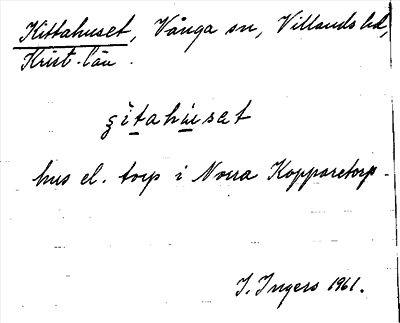 Kittahuset, Vånga sn, Villands hd,
Krist. län.
gitahúsat
hus el. torp i Norra Kopparetorp.
I. Ingers 1961.